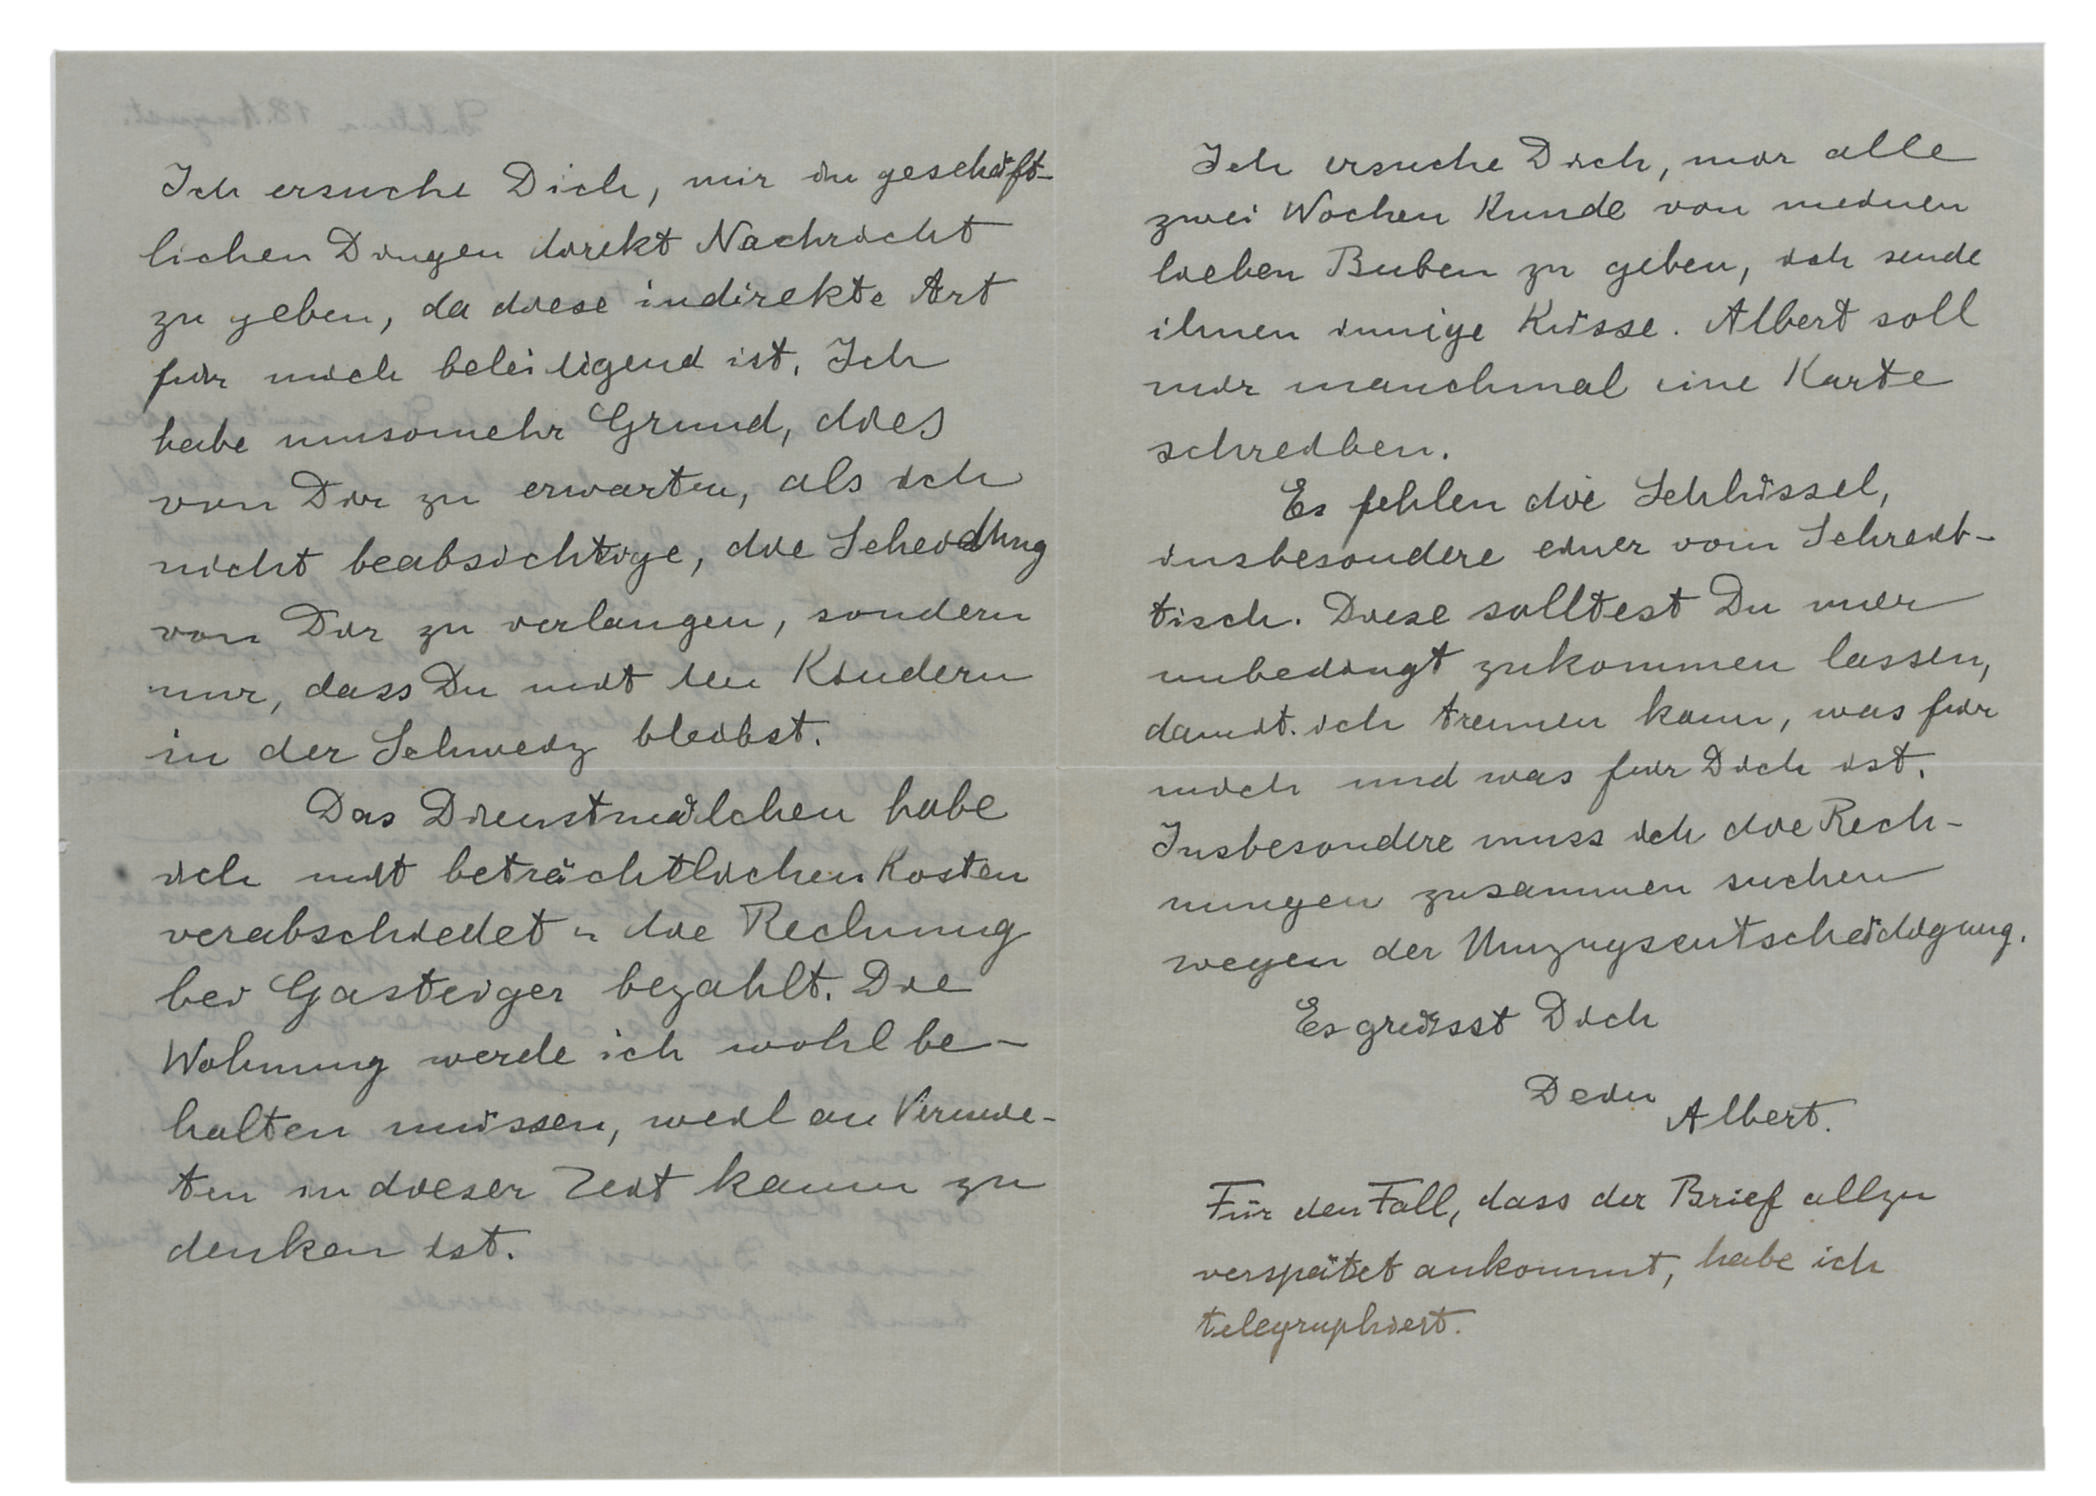 Ich ersuche Dich, mir in geschäft-
lichen Dingen direkt Nachricht
zu geben, da diese indirekte Art
für mich beleidigend ist. Ich
habe umsomehr Grund, dies
von Dir zu erwarten, als ich
nicht beabsichtige, die Scheidung
von Dir zu verlangen, sondern
nur, dass Du mit den Kindern
in der Schweiz bleibst.
Das Dienstmädchen habe
ich mit beträchtlichen Kosten
verabschiedet u die Rechnung
bei Gasteiger bezahlt. Die
Wohnung werde ich wohl be-
halten müssen, weil an Vermie-
ten in dieser Zeit kaum zu
denken ist.
Ich ersuche Dich, mir alle
zwei Wochen Kunde von meinen
lieben Buben zu geben, ich sende
ihnen innige Küsse. Albert soll
mir manchmal eine Karte
schreiben.
Es fehlen die Schlüssel,
insbesondere einer vom Schreib-
tisch. Diese solltest Du mir
unbedingt zukommen lassen,
damit ich trennen kann, was für
mich und was für Dich ist.
Insbesondere muss ich die Rech-
nungen zusammen suchen
wegen der Umzugsentschädigung.
Es grüsst Dich
Dein
Albert.
Für den Fall, dass der Brief allzu
verspätet ankommt, habe ich
telegraphiert.